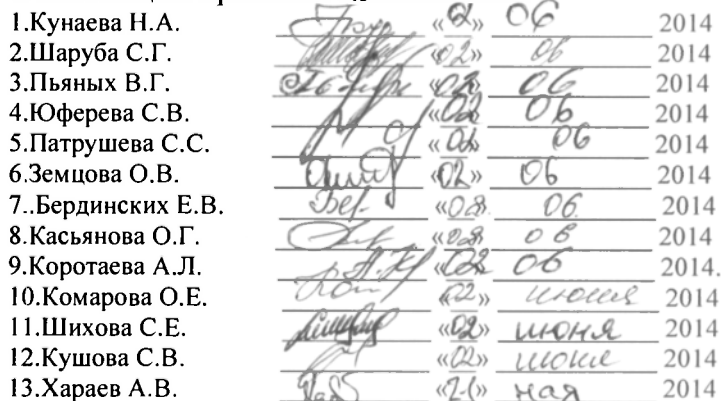 1.Кунаева Н.А. «2» 06 2014
2.Шаруба С.Г. «02» 06 2014
3.Пьяных В.Г. «02» 06 2014
4.Юферева С.В. «02» 06 2014
5.Патрушева С.С. «02» 06 2014
6.Земцова О.В. «02» 06 2014
7..Бердинских Е.В. Бер. «02» 06. 2014
8.Касьянова О.Г. «02» 06 2014
9.Коротаева А.Л. «02 06 2014.
10.Комарова О.Е. «02» июня 2014
11.Шихова С.Е. «02» июня 2014
12.Кушова С.В. «02» июня 2014
13.Хараев А.В. мая 2014